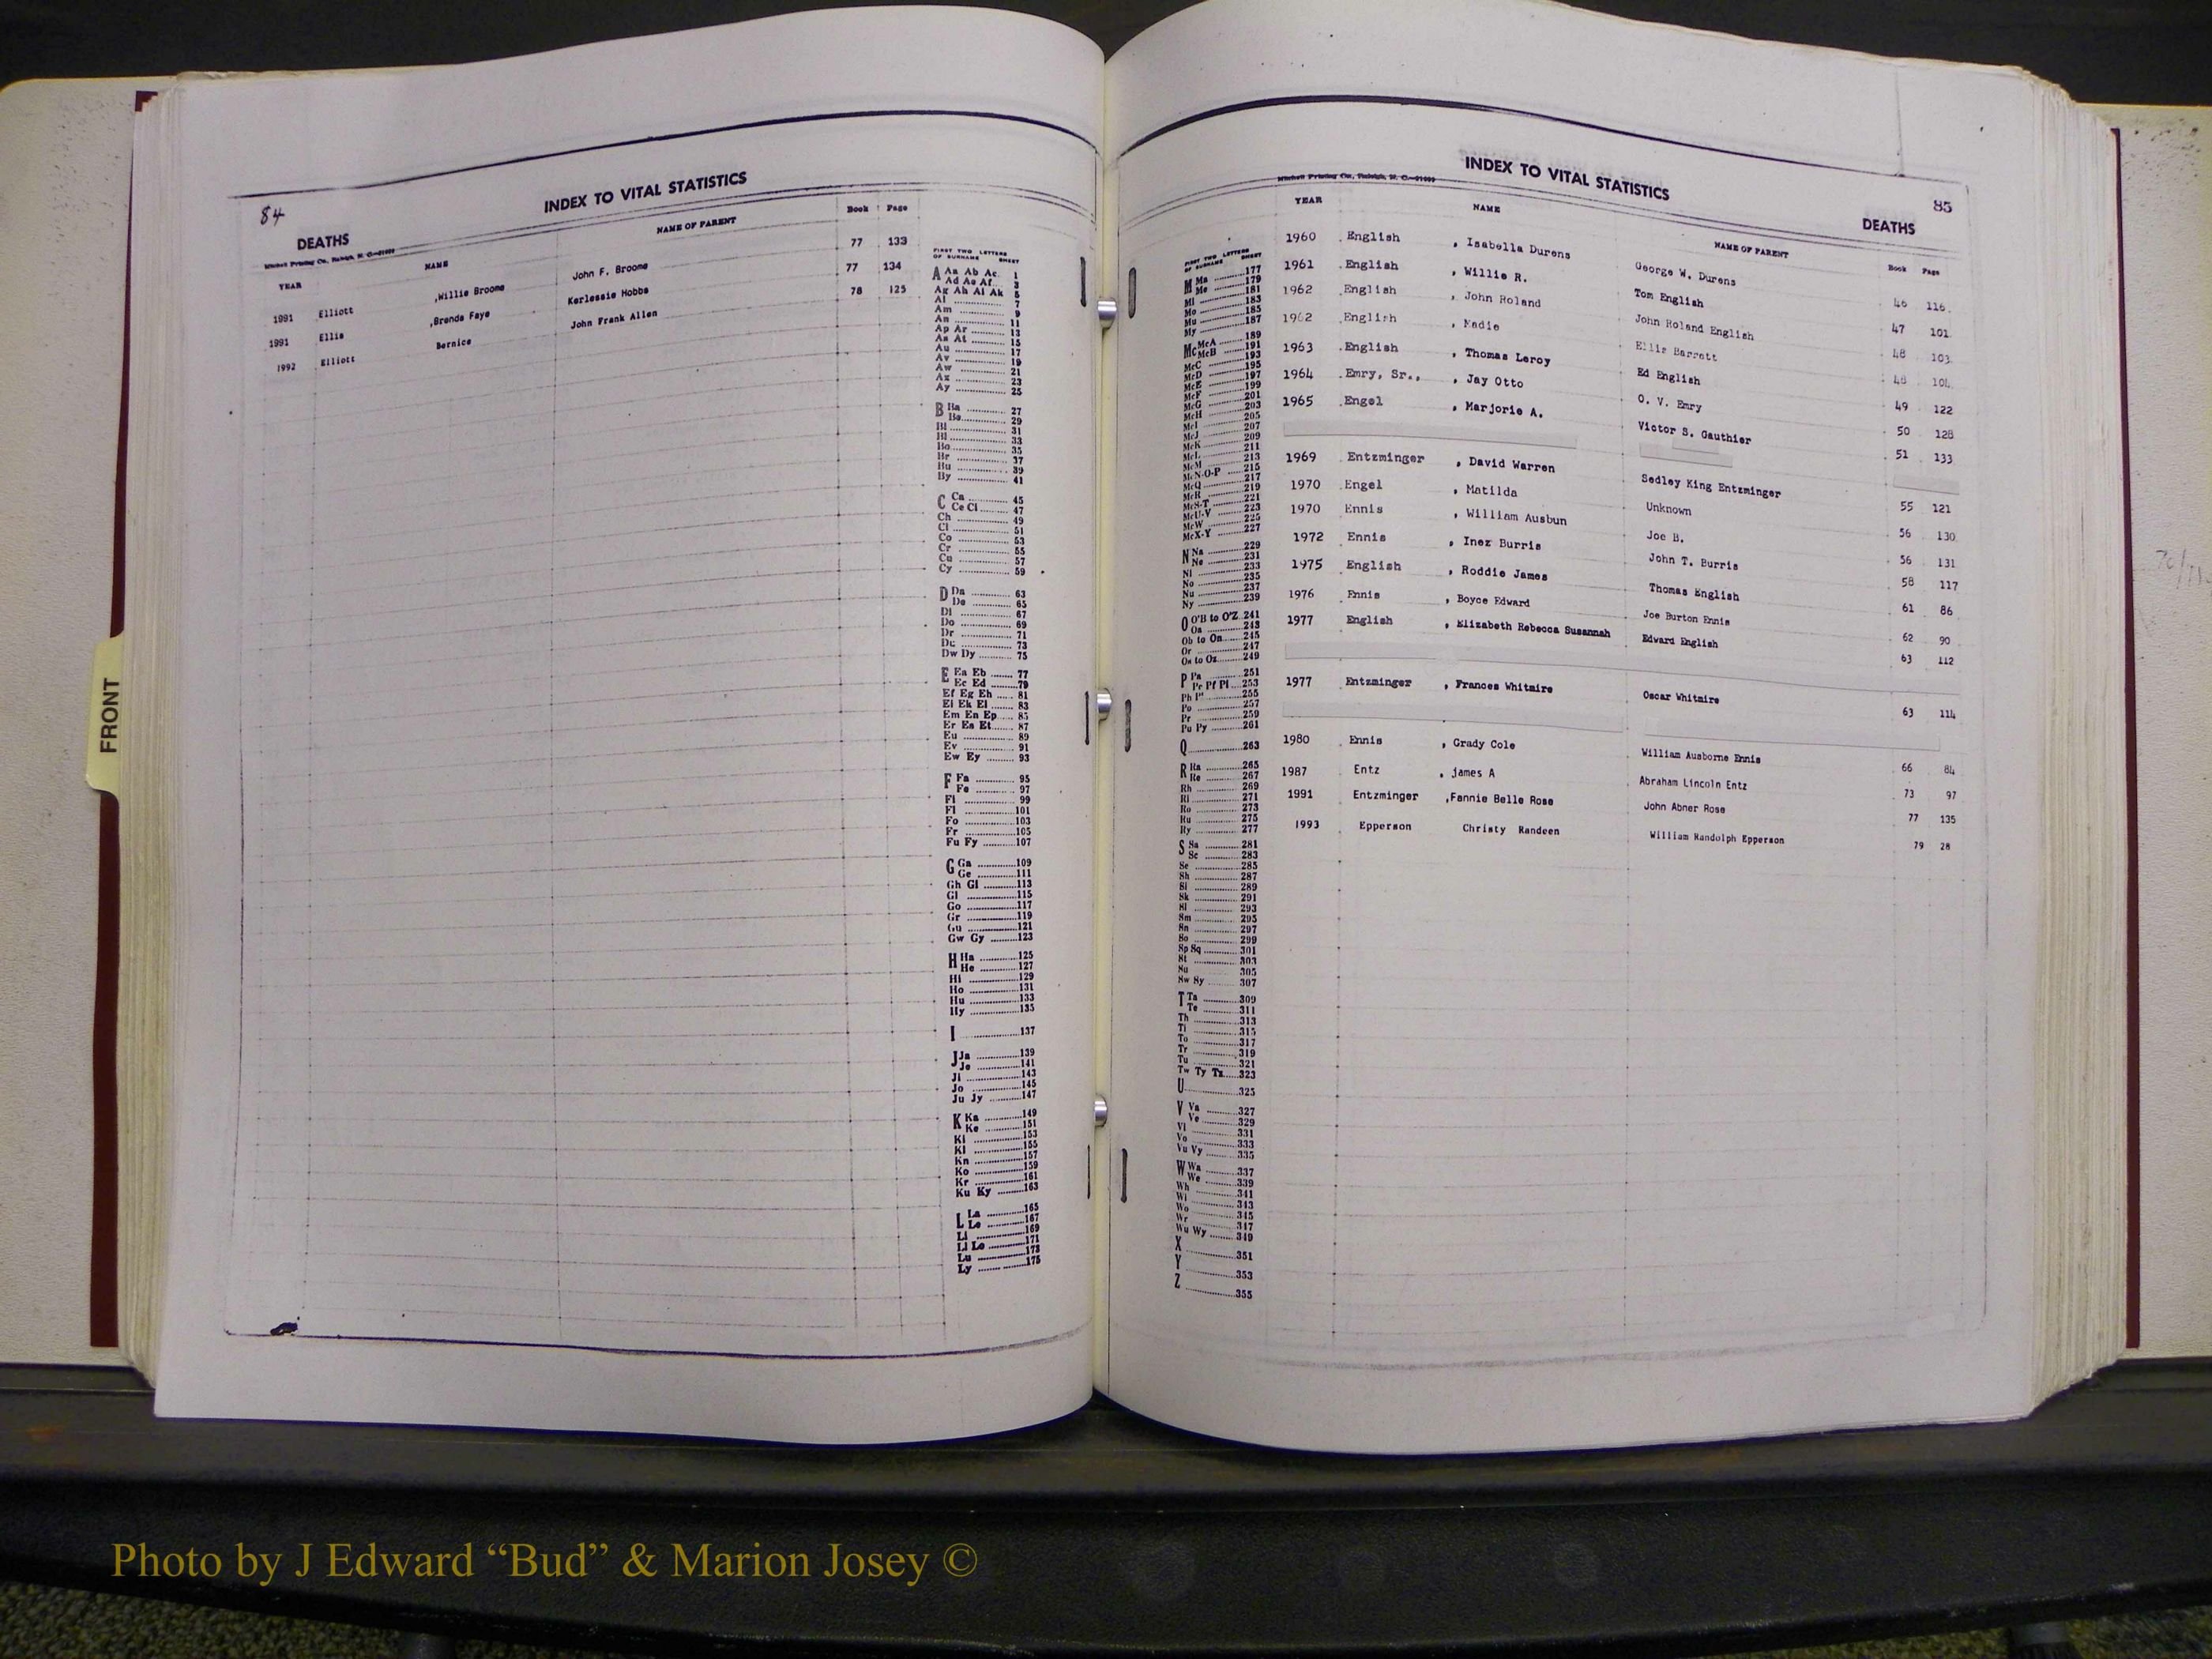 84
INDEX TO VITAL STATISTICS
DEATHS
Mitchell Printing Co., Raleigh, N. C.
YEAR NAME NAME OF PARENT Book Page
1991 Elliott ,Willie Broome John F. Broome 77 133
1991 Ellis ,Brenda Faye Kerlessie Hobbs 77 134
1992 Elliott Bernice John Frank Allen 78 125
FIRST TWO LETTERS OF SURNAME SHEET
A Aa Ab Ac 1
Ad Ae Af 3
Ag Ah Ai Ak 5
Al 7
Am 9
An 11
Ap Ar 13
As At 15
Au 17
Av 19
Aw 21
Ax 23
Ay 25
B Ba 27
Be 29
Bi 31
Bl 33
Bo 35
Br 37
Bu 39
By 41
C Ca 45
Ce Ci 47
Ch 49
Cl 51
Co 53
Cr 55
Cu 57
Cy 59
D Da 63
De 65
Di 67
Do 69
Dr 71
Du 73
Dw Dy 75
E Ea Eb 77
Ec Ed 79
Ef Eg Eh 81
Ei Ek El 83
Em En Ep 85
Er Es Et 87
Eu 89
Ev 91
Ew Ey 93
F Fa 95
Fe 97
Fi 99
Fl 101
Fo 103
Fr 105
Fu Fy 107
G Ga 109
Ge 111
Gh Gi 113
Gl 115
Go 117
Gr 119
Gu 121
Gw Gy 123
H Ha 125
He 127
Hi 129
Ho 131
Hu 133
Hy 135
I 137
J Ja 139
Je 141
Ji 143
Jo 145
Ju Jy 147
K Ka 149
Ke 151
Ki 153
Kl 155
Kn 157
Ko 159
Kr 161
Ku Ky 163
L La 165
Le 167
Li 169
Ll Lo 171
Lu 173
Ly 175
FRONT
85
INDEX TO VITAL STATISTICS
DEATHS
Mitchell Printing Co., Raleigh, N. C.
YEAR NAME NAME OF PARENT Book Page
1960 English , Isabella Durens George W. Durens 46 116
1961 English , Willie R. Tom English 47 101
1962 English , John Roland John Roland English 48 103
1962 English , Madie Ellis Barrett 48 104
1963 English , Thomas Leroy Ed English 49 122
1964 Emry, Sr., , Jay Otto O. V. Emry 50 128
1965 Engel , Marjorie A. Victor S. Gauthier 51 133
1969 Entzminger , David Warren Sedley King Entzminger 55 121
1970 Engel , Matilda Unknown 56 130
1970 Ennis , William Ausbun Joe B. 56 131
1972 Ennis , Inez Burris John T. Burris 58 117
1975 English , Roddie James Thomas English 61 86
1976 Ennis , Boyce Edward Joe Burton Ennis 62 90
1977 English , Elizabeth Rebecca Susannah Edward English 63 112
1977 Entzminger , Frances Whitmire Oscar Whitmire 63 114
1980 Ennis , Grady Cole William Ausborne Ennis 66 84
1987 Entz , james A Abraham Lincoln Entz 73 97
1991 Entzminger ,Fannie Belle Rose John Abner Rose 77 135
1993 Epperson Christy Randeen William Randolph Epperson 79 28
FIRST TWO LETTERS OF SURNAME SHEET
M Ma 177
Me 179
Mi 181
Mo 183
Mu 185
My 187
Mc McA 189
McB 191
McC 193
McD 195
McE 197
McF 199
McG 201
McH 203
McI 205
McJ 207
McK 209
McL 211
McM 213
McN-O-P 215
McQ 217
McR 219
McS-T 221
McU-V 223
McW 225
McX-Y 227
N Na 229
Ne 231
Ni 233
No 235
Nu 237
Ny 239
O O'B to O'Z 241
Oa 243
Ob to On 245
Or 247
Os to Oz 249
P Pa 251
Pe Pf Pi 253
Ph Pl 255
Po 257
Pr 259
Pu Py 261
Q 263
R Ra 265
Re 267
Rh 269
Ri 271
Ro 273
Ru 275
Ry 277
S Sa 281
Sc 283
Se 285
Sh 287
Si 289
Sk 291
Sl 293
Sm 295
Sn 297
So 299
Sp Sq 301
St 303
Su 305
Sw Sy 307
T Ta 309
Te 311
Th 313
Ti 315
To 317
Tr 319
Tu 321
Tw Ty Tz 323
U 325
V Va 327
Ve 329
Vi 331
Vo 333
Vu Vy 335
W Wa 337
We 339
Wh 341
Wi 343
Wo 345
Wr 347
Wu Wy 349
X 351
Y 353
Z 355
Photo by J Edward “Bud” & Marion Josey ©